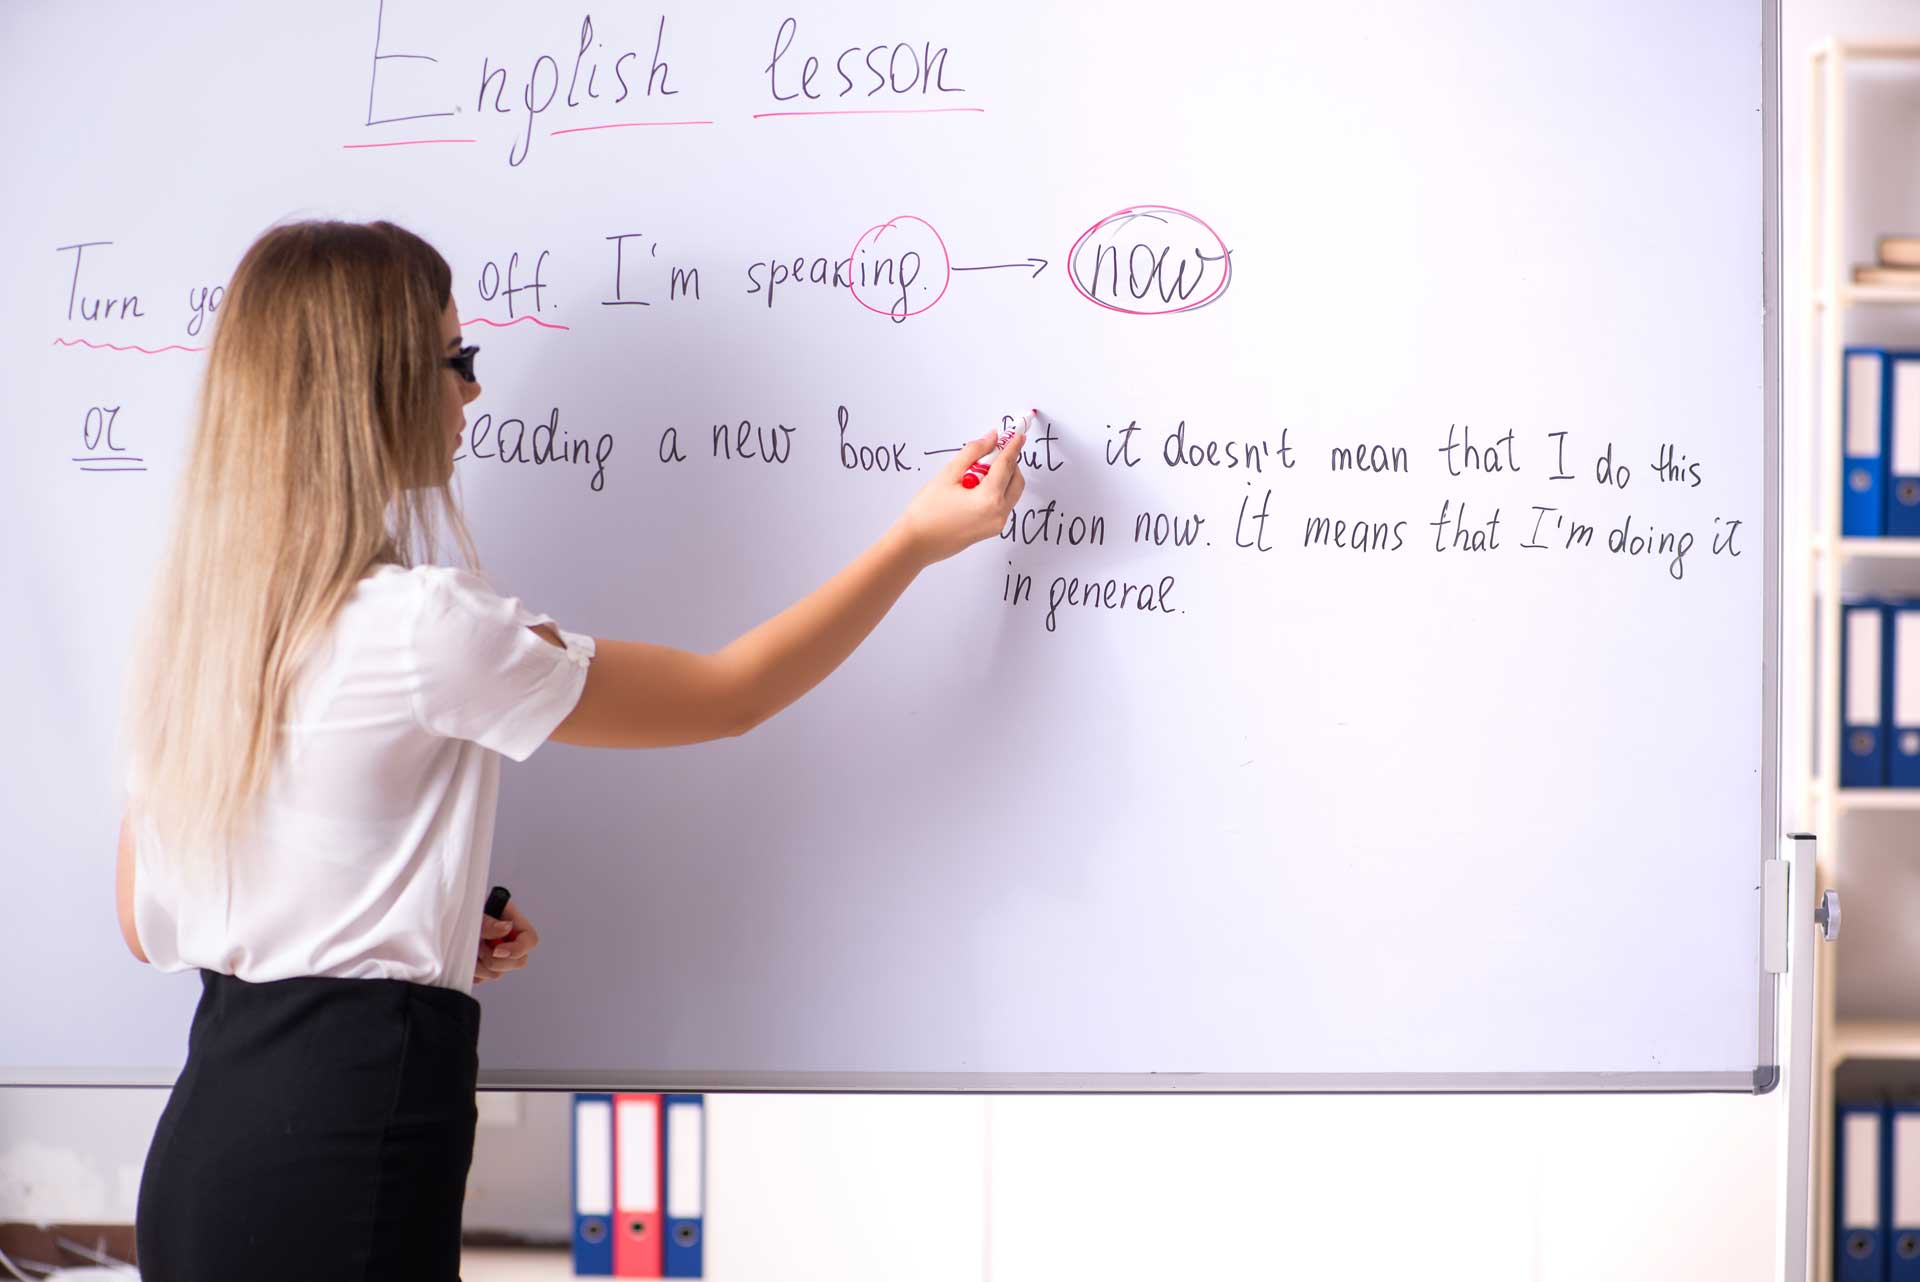 English lesson
Turn off. I'm speaking. → now
or a new book. — but it doesn't mean that I do this
action now. It means that I'm doing it
in general.